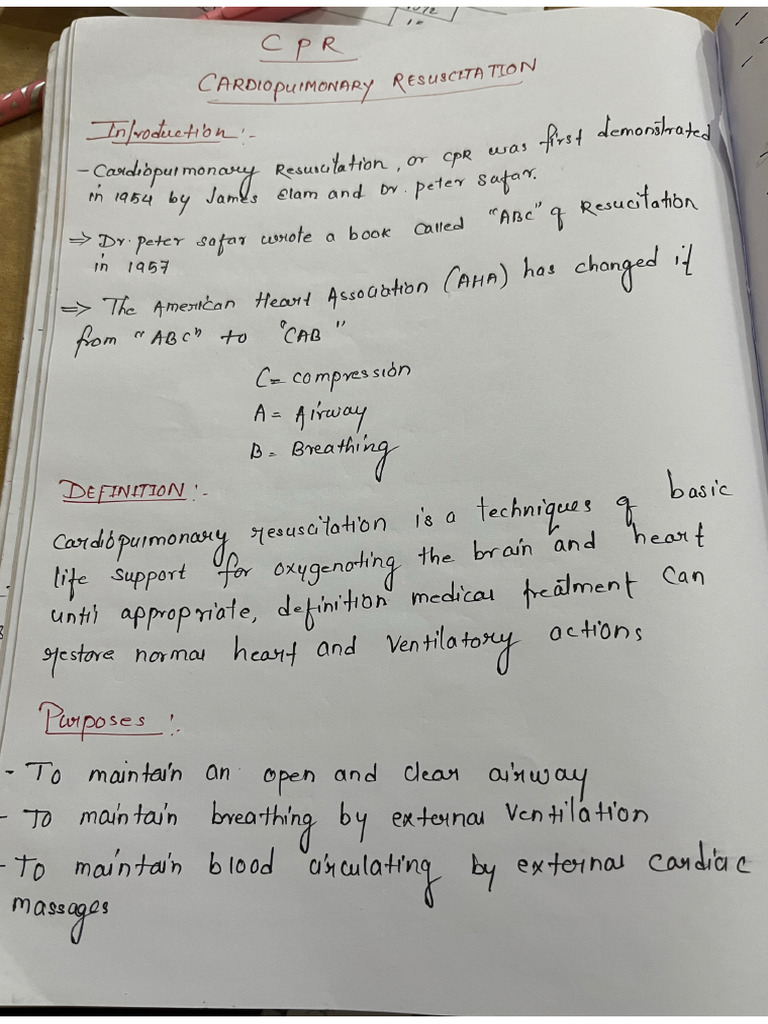 CPR
CARDIOPULMONARY RESUSCITATION
Introduction :-
- Cardiopulmonary Resuscitation, or CPR was first demonstrated
in 1954 by James Elam and Dr. peter Safar.
⇒ Dr. peter safar wrote a book called "ABC" of Resucitation
in 1957
⇒ The American Heart Association (AHA) has changed it
from "ABC" to "CAB"
C = compression
A = Airway
B = Breathing
DEFINITION :-
Cardiopulmonary resuscitation is a techniques of basic
life support for oxygenating the brain and heart
until appropriate, definition medical treatment can
restore normal heart and ventilatory actions
Purposes :-
- To maintain an open and clear airway
- To maintain breathing by external ventilation
- To maintain blood circulating by external cardiac
massages